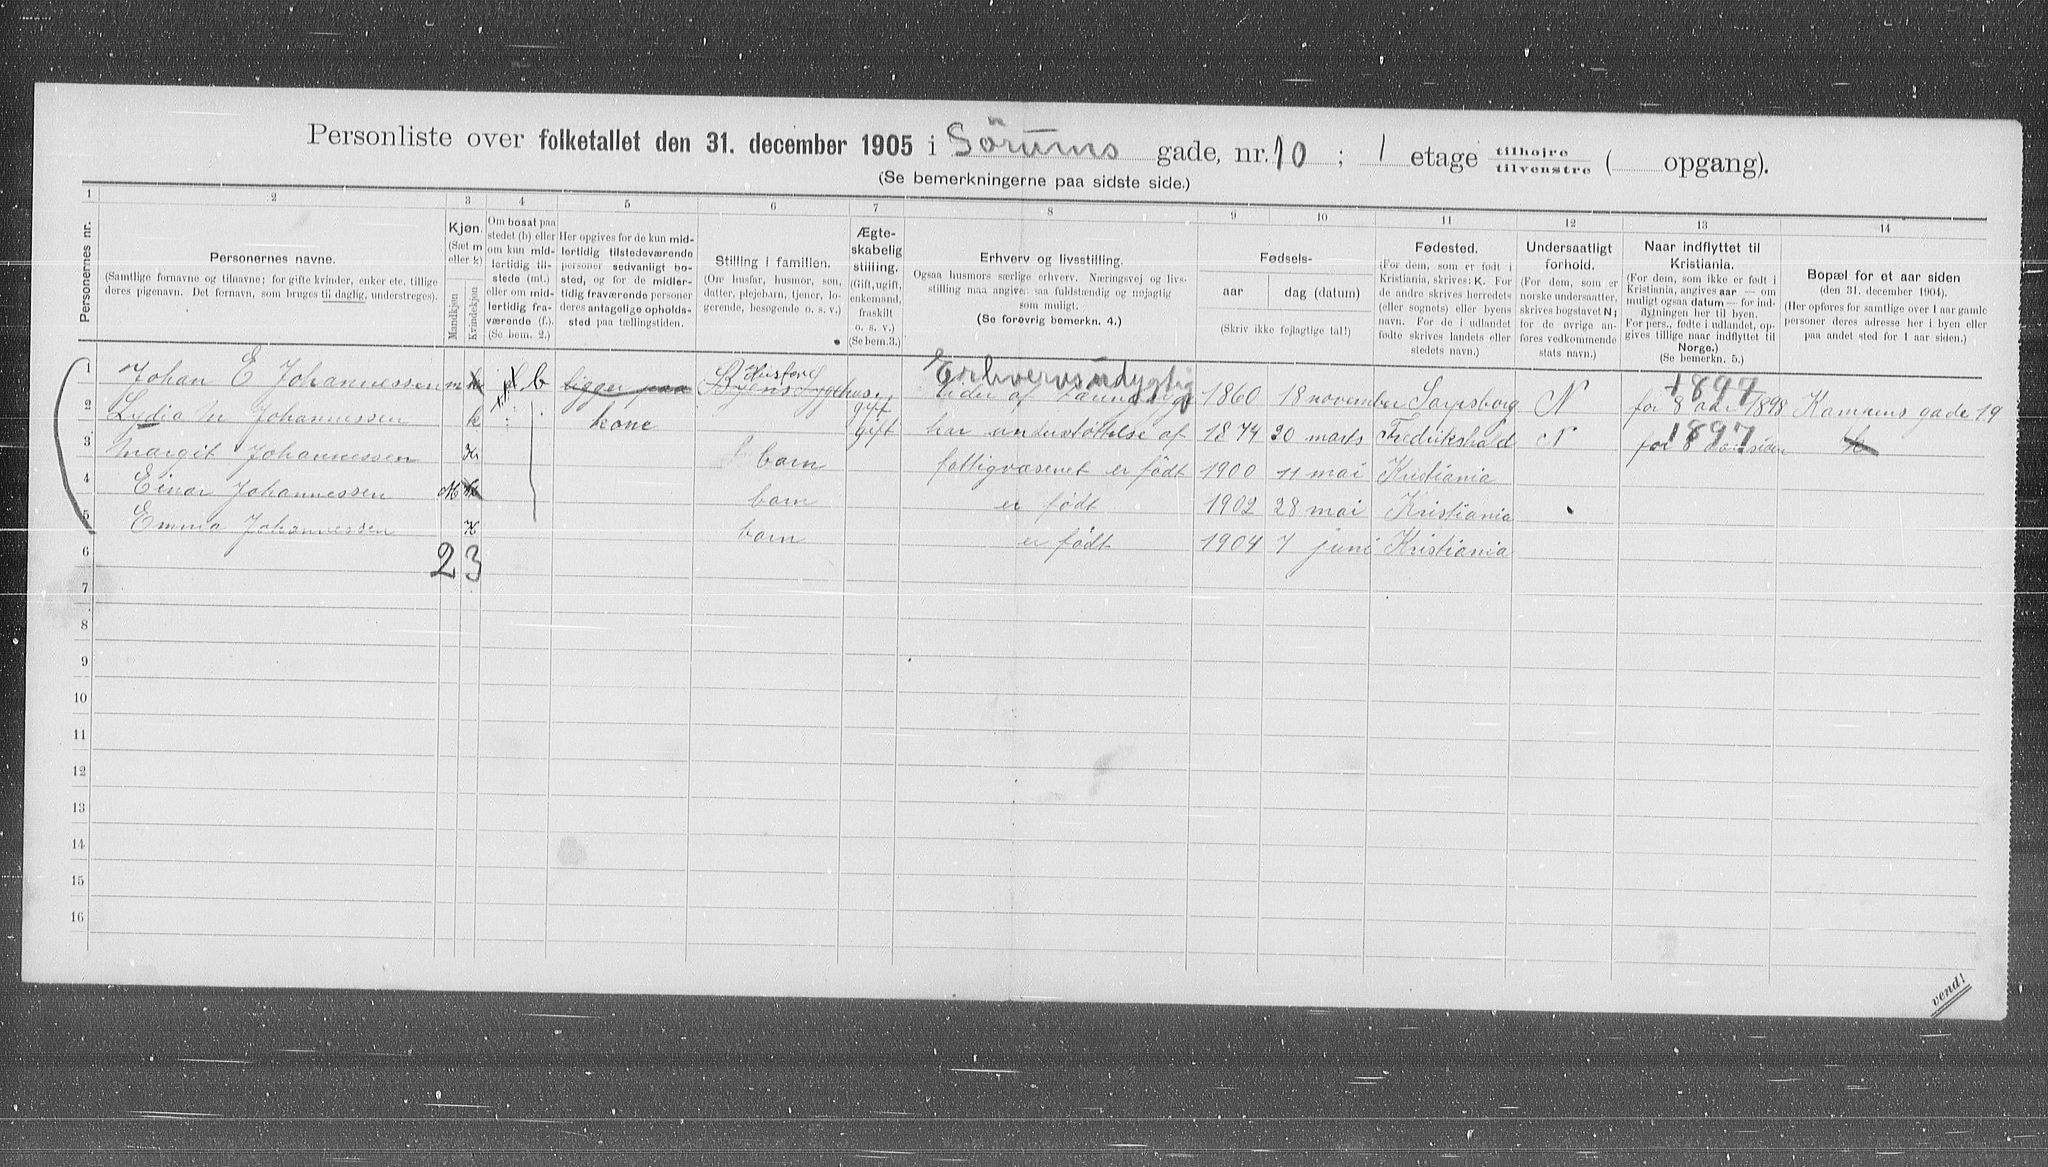 Personliste over folketallet den 31. december 1905 i Sörums gade, nr. 10 ; 1 etage tilhøjre / tilvenstre ( opgang).
(Se bemerkningerne paa sidste side.)
1 2 3 4 5 6 7 8 9 10 11 12 13 14
Personernes nr.
Personernes navne.
(Samtlige fornavne og tilnavne; for gifte kvinder, enker etc. tillige deres pigenavn. Det fornavn, som bruges til daglig, understreges).
Kjøn.
(Sæt m eller k)
Mandkjøn
Kvindekjøn
Om bosat paa stedet (b) eller om kun midlertidig tilstede (mt.) eller om midlertidig fraværende (f.). (Se bem. 2.)
Her opgives for de kun midlertidig tilstedeværende personer sedvanligt bosted, og for de midlertidig fraværende personer deres antagelige opholdssted paa tællingstiden.
Stilling i familien.
(Om husfar, husmor, søn, datter, plejebarn, tjener, logerende, besøgende o. s. v.)
Ægteskabelig stilling.
(Gift, ugift, enkemand, fraskilt o. s. v.)
(Se bem. 3.)
Erhverv og livsstilling.
Ogsaa husmors særlige erhverv. Næringsvej og livsstilling maa angives saa fuldstændig og nøjagtig som muligt.
(Se forøvrig bemerkn. 4.)
Fødsels-
aar
dag (datum)
(Skriv ikke fejlagtige tal!)
Fødested.
(For dem, som er født i Kristiania, skrives: K. For de andre skrives herredets (eller sognets) eller byens navn. For de i udlandet fødte skrives landets eller stedets navn.)
Undersaatligt forhold.
(For dem, som er norske undersaatter, skrives bogstavet N; for de øvrige anføres vedkommende stats navn.)
Naar indflyttet til Kristiania.
(For dem, som ikke er født i Kristiania, angives aar — om muligt ogsaa datum — for indflytningen her til byen. For pers., fødte i udlandet, opgives tillige naar indflyttet til Norge.)
(Se bemerkn. 5.)
Bopæl for et aar siden
(den 31. december 1904).
(Her opføres for samtlige over 1 aar gamle personer deres adresse her i byen eller paa andet sted for 1 aar siden.)
1 Johan E Johannessen m b ligger paa Husfar Byens Sygehus gift Erhvervsudygtig lider af 1860 18 november Sarpsborg N 1897 for 8 aar 1898 Kampens gade 19
2 Lydia M Johannessen k kone gift har understøttelse af 1874 20 marts Fredrikshald N 1897 for 8 aar siden
3 Margit Johannessen K barn fattigvæsenet er født 1900 11 mai Kristiania
4 Einar Johannessen M barn er födt 1902 28 mai Kristiania
5 Emma Johannessen K barn er födt 1904 7 juni Kristiania
6 2 3
7
8
9
10
11
12
13
14
15
16
vend!